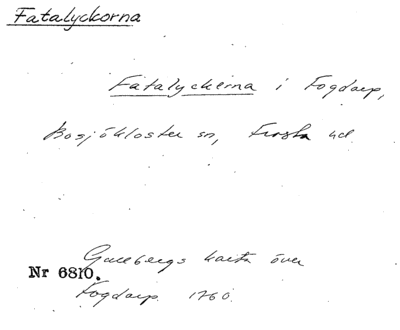 Fatalyckorna
Fatalyckerna i Fogdarp,
Bosjökloster sn, Frosta hd
karta över
Nr 6810.
Fogdarp 1760.